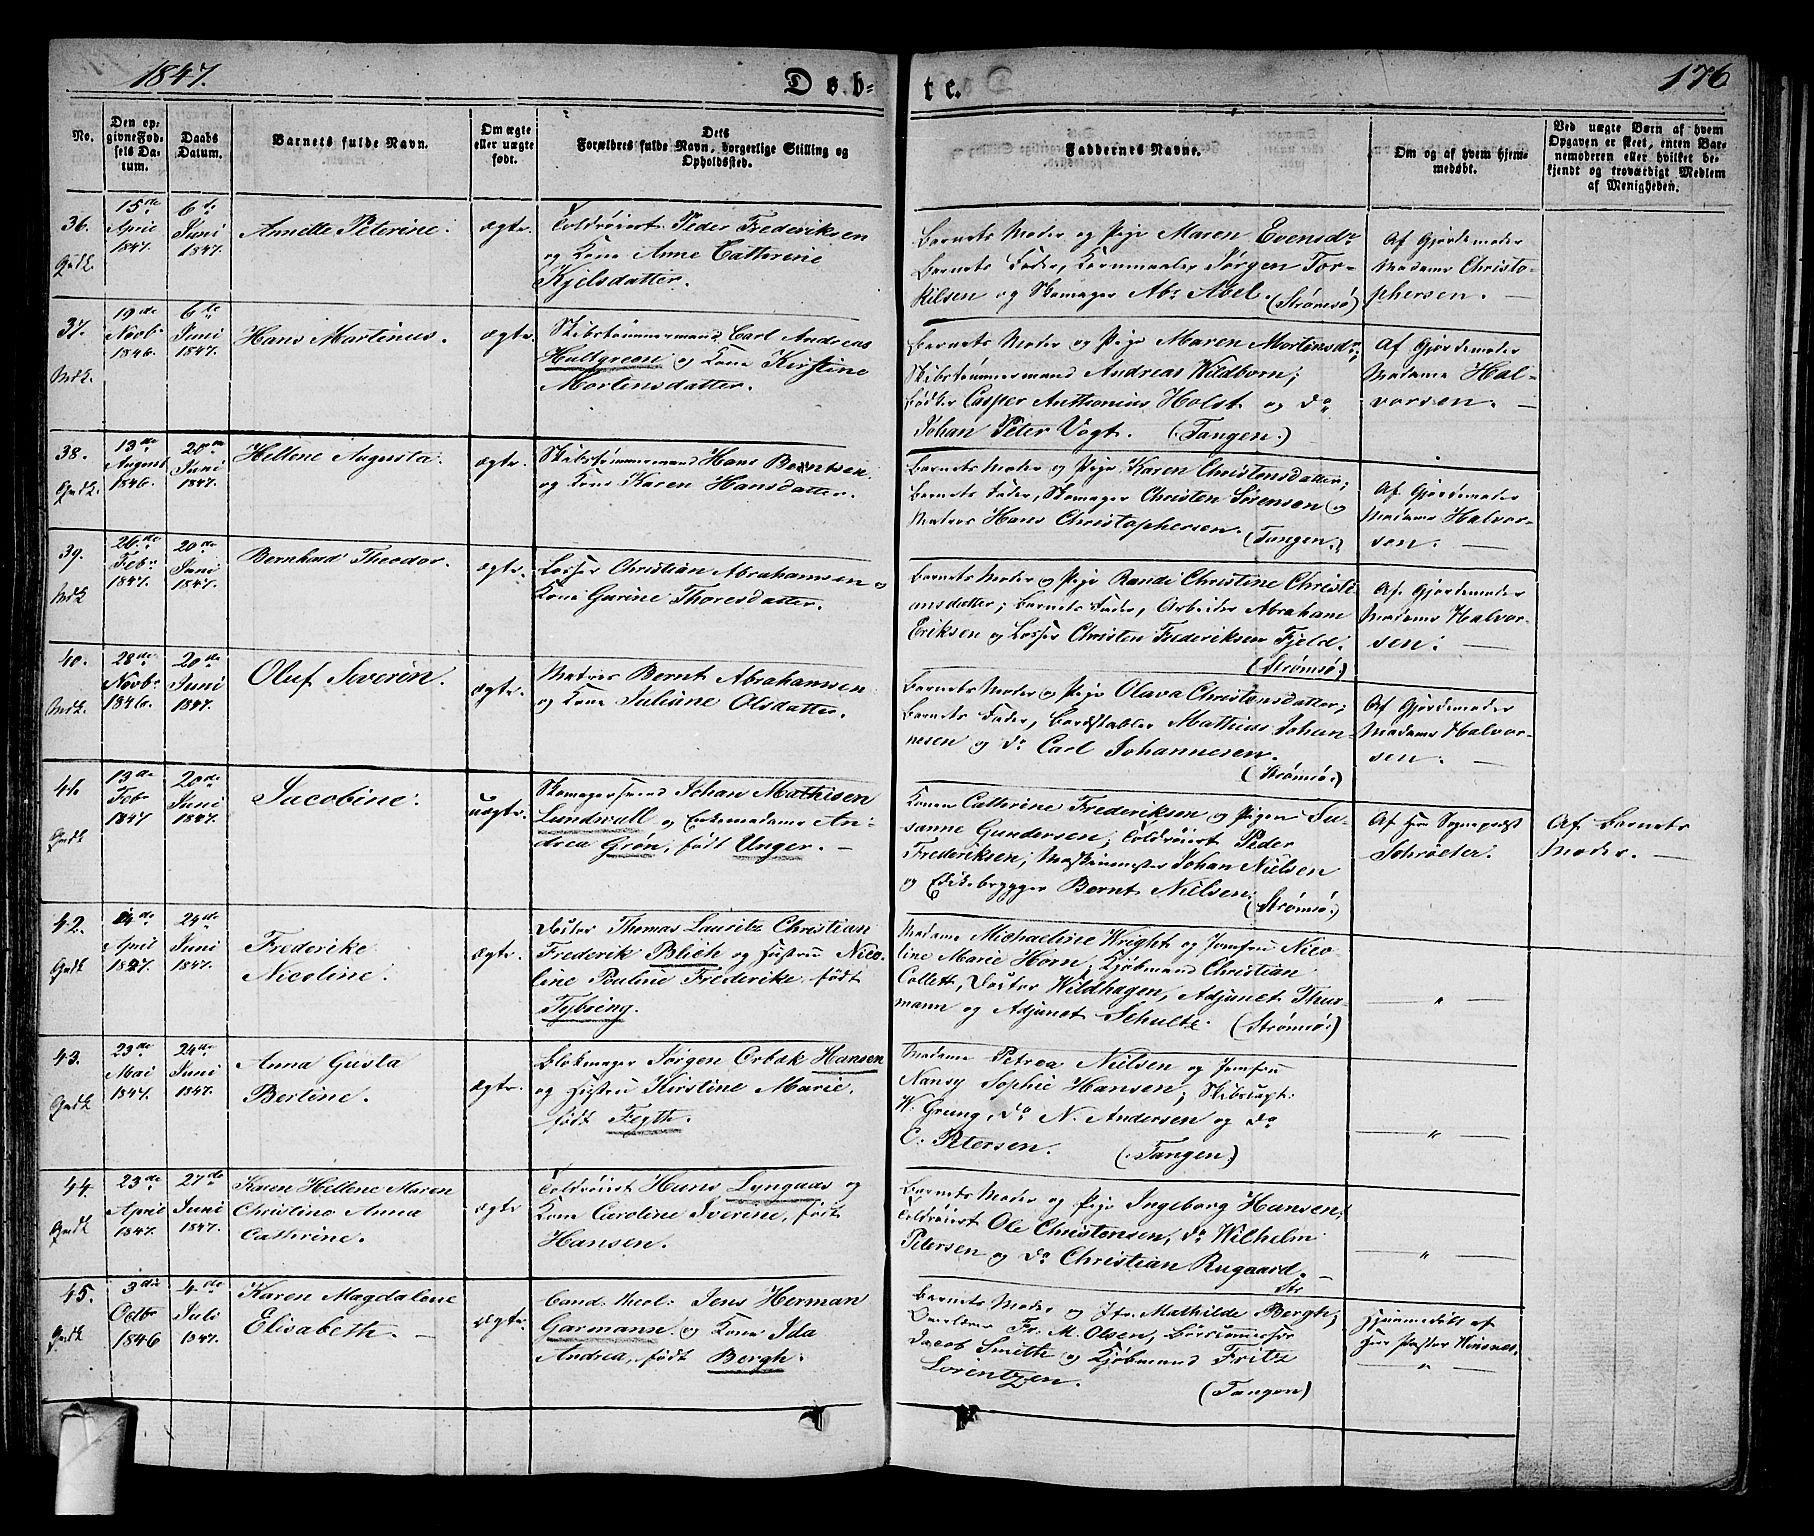 1847.
Døb=
te.
176
No.
Den op=
givne Fød=
sels Da=
tum.
Daabs
Datum.
Barnets fulde Navn.
Om ægte
eller uægte
født.
Dets
Forældres fulde Navn, borgerlige Stilling og
Opholdssted.
Faddernes Navne.
Om og af hvem hjem=
medøbt.
Ved uægte Børn af hvem
Opgaven er skeet, enten Bar=
nemoderen eller hvilket be=
kjendt og troværdigt Medlem
af Menigheden.
36.
15de
April
1847.
6te
Juni
1847.
Annette Peterine.
ægte.
Toldrôiert Peder Frederiksen
og Kone Anne Catherine
Kjelsdatter.
Barnets Moder og Pige Maren Evensdr
Barnets Fader, Kornmaaler Jørgen Tor-
kilsen og Skomager Abr Abel. (Strømsø)
Af Gjordemoder
Madame Christo-
phersen. —
37.
19de
Novb
1846.
6te
Juni
1847.
Hans Martinus.
ægte.
Skibstømmermand Carl Andreas
Hultgreen og Kone Kirstine
Mortensdatter.
Barnets Moder og Pige Maren Mortensdr;
Skibstømmermand Andreas Wildborn;
Bødker Casper Anthonius Holst og do
Johan Peter Vogt. (Tangen.)
Af Gjordemoder
Madame Hal-
vorsen. —
38.
13de
August
1846.
20de
Juni
1847.
Hellene Augusta.
ægte.
Skibstømmermand Hans Berntsen
og Kone Karen Hansdatter.
Barnets Moder og Pige Karen Christensdatter;
Barnets Fader, Skomager Christen Sørensen og
Matros Hans Christophersen. (Tangen.)
Af Gjordemoder
Madame Halvor-
sen. —
39.
26de
Febr
1847.
20de
Juni
1847.
Bernhard Theodor.
ægte.
Losser Christian Abrahamsen og
Kone Gurine Thoresdatter.
Barnets Moder og Pige Randi Christine Christi
ansdatter; Barnets Fader, Arbeider Abraham
Eriksen og Losser Christen Frederiksen Fjeld.
(Strømsø.)
Af Gjordemoder
Madame Halvor-
sen. —
40.
28de
Novbr
1846.
20de
Juni
1847.
Oluf Severin.
ægte.
Matros Bernt Abrahamsen
og Kone Juliane Olsdatter.
Barnets Moder og Pige Olava Christensdatter;
Barnets Fader, Bordstabler Mathias Johan-
nesen og do Carl Johannesen.
(Strømsø.)
Af Gjordemoder
Madame Halvor-
sen. —
41.
13de
Feb
1847
20de
Juni
1847.
Jacobine.
uægte.
Skomagersvend Johan Mathisen
Lundwall og Enkemadame An-
drea Grøn, født Unger. —
Konen Catherine Frederiksen og Pigen Su-
sanne Gundersen; Toldrôiert Peder
Frederiksen; Maskinmester Johan Nielsen
og Edikebrygger Bernt Nielsen. (Strømsø.)
Af Hr Sognepræst
Schrøeter.
Af Barnets
Moder. —
42.
April
1847.
24de
Juni
1847.
Frederike
Nicoline.
ægte.
Foster Thomas Lauritz Christian
Frederik Blich og Hustru Nico-
line Pouline Frederike, født
Tybring.
Madame Michaeline Wright og Jomfru Nico-
line Marie Horn, Kjøbmand Christian
Collett, Foster Wildhagen, Adjunct Thur-
mann og Adjunct Schulte. (Strømsø.)
— " —
43.
23de
Mai
1847.
24de
Juni
1847.
Anna Gusta
Bertine.
ægte.
Blokmager Jørgen Orbæk Hansen
og Hustru Kirstine Marie,
født Fegth.
Madame Petrea Nielsen og Jomfru
Nansy Sophie Hansen; Skibscapt:
W. Grung, do N. Andersen og do
C. Petersen. (Tangen.)
— " —
44.
23de
April
1847.
27de
Juni
1847.
Karen Hellene Maren
Christine Anna
Cathrine.
ægte
Toldrôiert Hans Lyngaas og
Kone Caroline Iverine, født
Hansen.
Barnets Moder og Pige Ingeborg Hansen;
Toldrôiert Ole Christensen, do Wilhelm
Petersen og do Christian Rugaard. —
Str
— " —
45.
3die
Octbr
1846
4de
Juli
1847.
Karen Magdalene
Elisabeth. —
ægte.
Cand. theol: Jens Herman
Garmann og Kone Ida
Andrea, født Bergh.
Barnets Moder og Jfr. Mathilde Bergh;
Overlærer Fr. M. Olsen, Børscommissær
Jacob Smith og Kjøbmand Fritz
Lorentzen. (Tangen)
Hjemmedøbt af
Hr Pastor Winsnes.
"